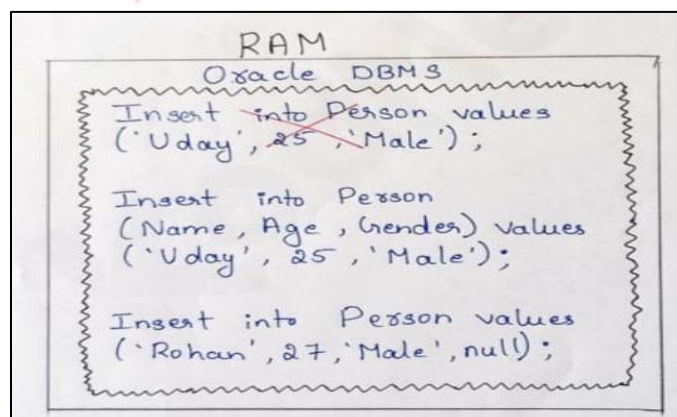 RAM
Oracle DBMS
Insert into Person values
('Uday', 25, 'Male');
Insert into Person
(Name, Age, Gender) values
('Uday', 25, 'Male');
Insert into Person values
('Rohan', 27, 'Male', null);